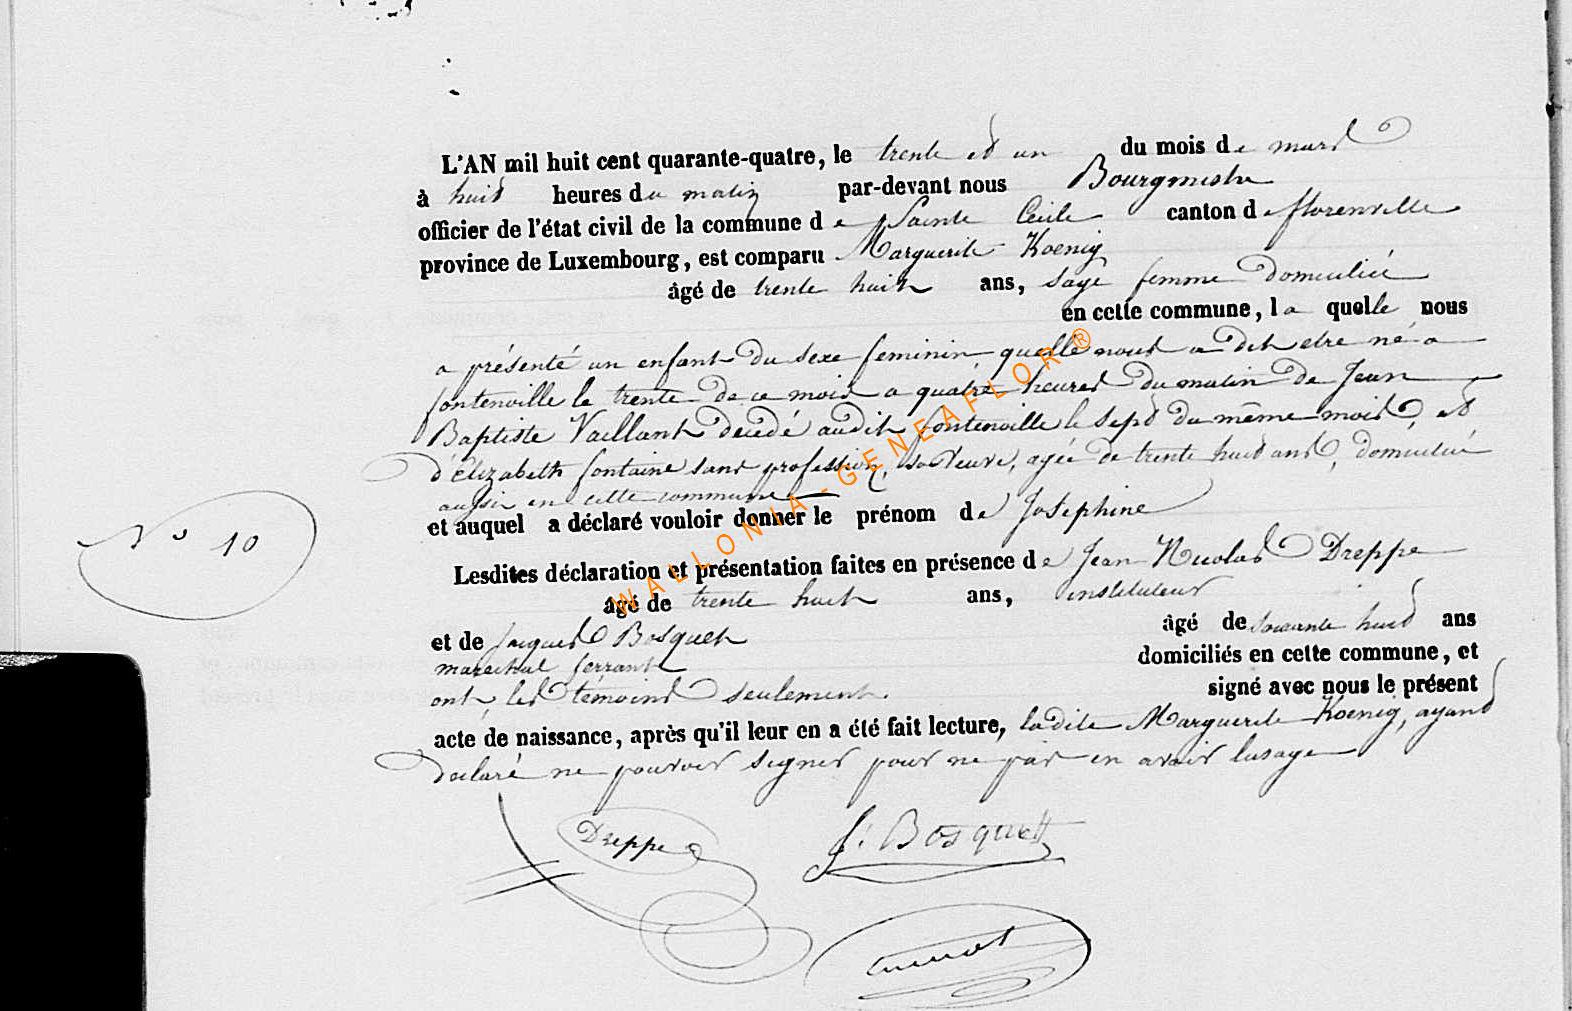 L'AN mil huit cent quarante-quatre, le trente et un du mois de mars
à huit heures du matin par-devant nous Bourgmestre
officier de l'état civil de la commune de Sainte Cecile canton de florenville
province de Luxembourg, est comparu Marguerite Koenig
âgé de trente huit ans, sage femme domiciliée
en cette commune, la quelle nous
a présenté un enfant du sexe feminin quelle nous a dit etre né a
fontenoille le trente de ce mois a quatre heures du matin de Jean
Baptiste Vaillant decedé audit fontenoille le sept du même mois, et
d'Elizabeth fontaine sans profession, sa veuve, agée de trente huit ans, domiciliée
aussi en cette commune
et auquel a déclaré vouloir donner le prénom de Josephine
N° 10
Lesdites déclaration et présentation faites en présence de Jean Nicolas Dreppe
âgé de trente huit ans, instituteur
et de Jacques Bosquet âgé de soixante huit ans
marechal ferrant domiciliés en cette commune, et
ont, les témoins seulement signé avec nous le présent
acte de naissance, après qu'il leur en a été fait lecture, ladite Marguerite Koenig, ayant
declaré ne pouvoir signer pour ne pas en avoir lusage
Dreppe J. Bosquet
WALLONIA-GENEAFLOR®